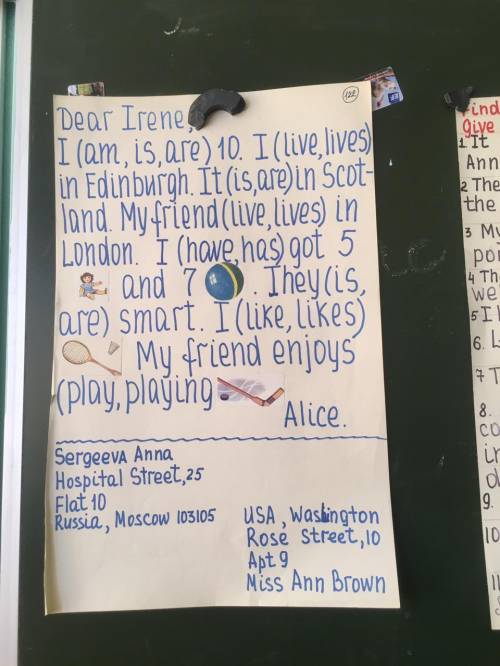 122
Dear Irene,
I (am, is, are) 10. I (live, lives)
in Edinburgh. It (is, are) in Scot-
land. My friend (live, lives) in
London. I (have, has) got 5
and 7 . They (is,
are) smart. I (like, likes)
My friend enjoys
(play, playing
Alice.
Sergeeva Anna
Hospital Street, 25
Flat 10
Russia, Moscow 103105
USA, Washington
Rose Street, 10
Apt 9
Miss Ann Brown
give
1 It
Ann
2 The
the
3 My
4 Th
we
5 I
6.
7 T
8.
co
in
9.
10